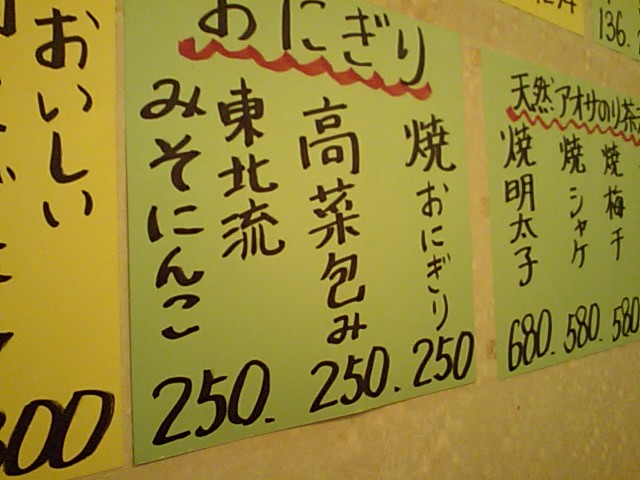 おにぎり
焼おにぎり 250
高菜包み 250.
東北流
みそにんこ 250.
天然アオサのり茶
焼梅干 580
焼シャケ 580.
焼明太子 680.
おいしい
00
136.